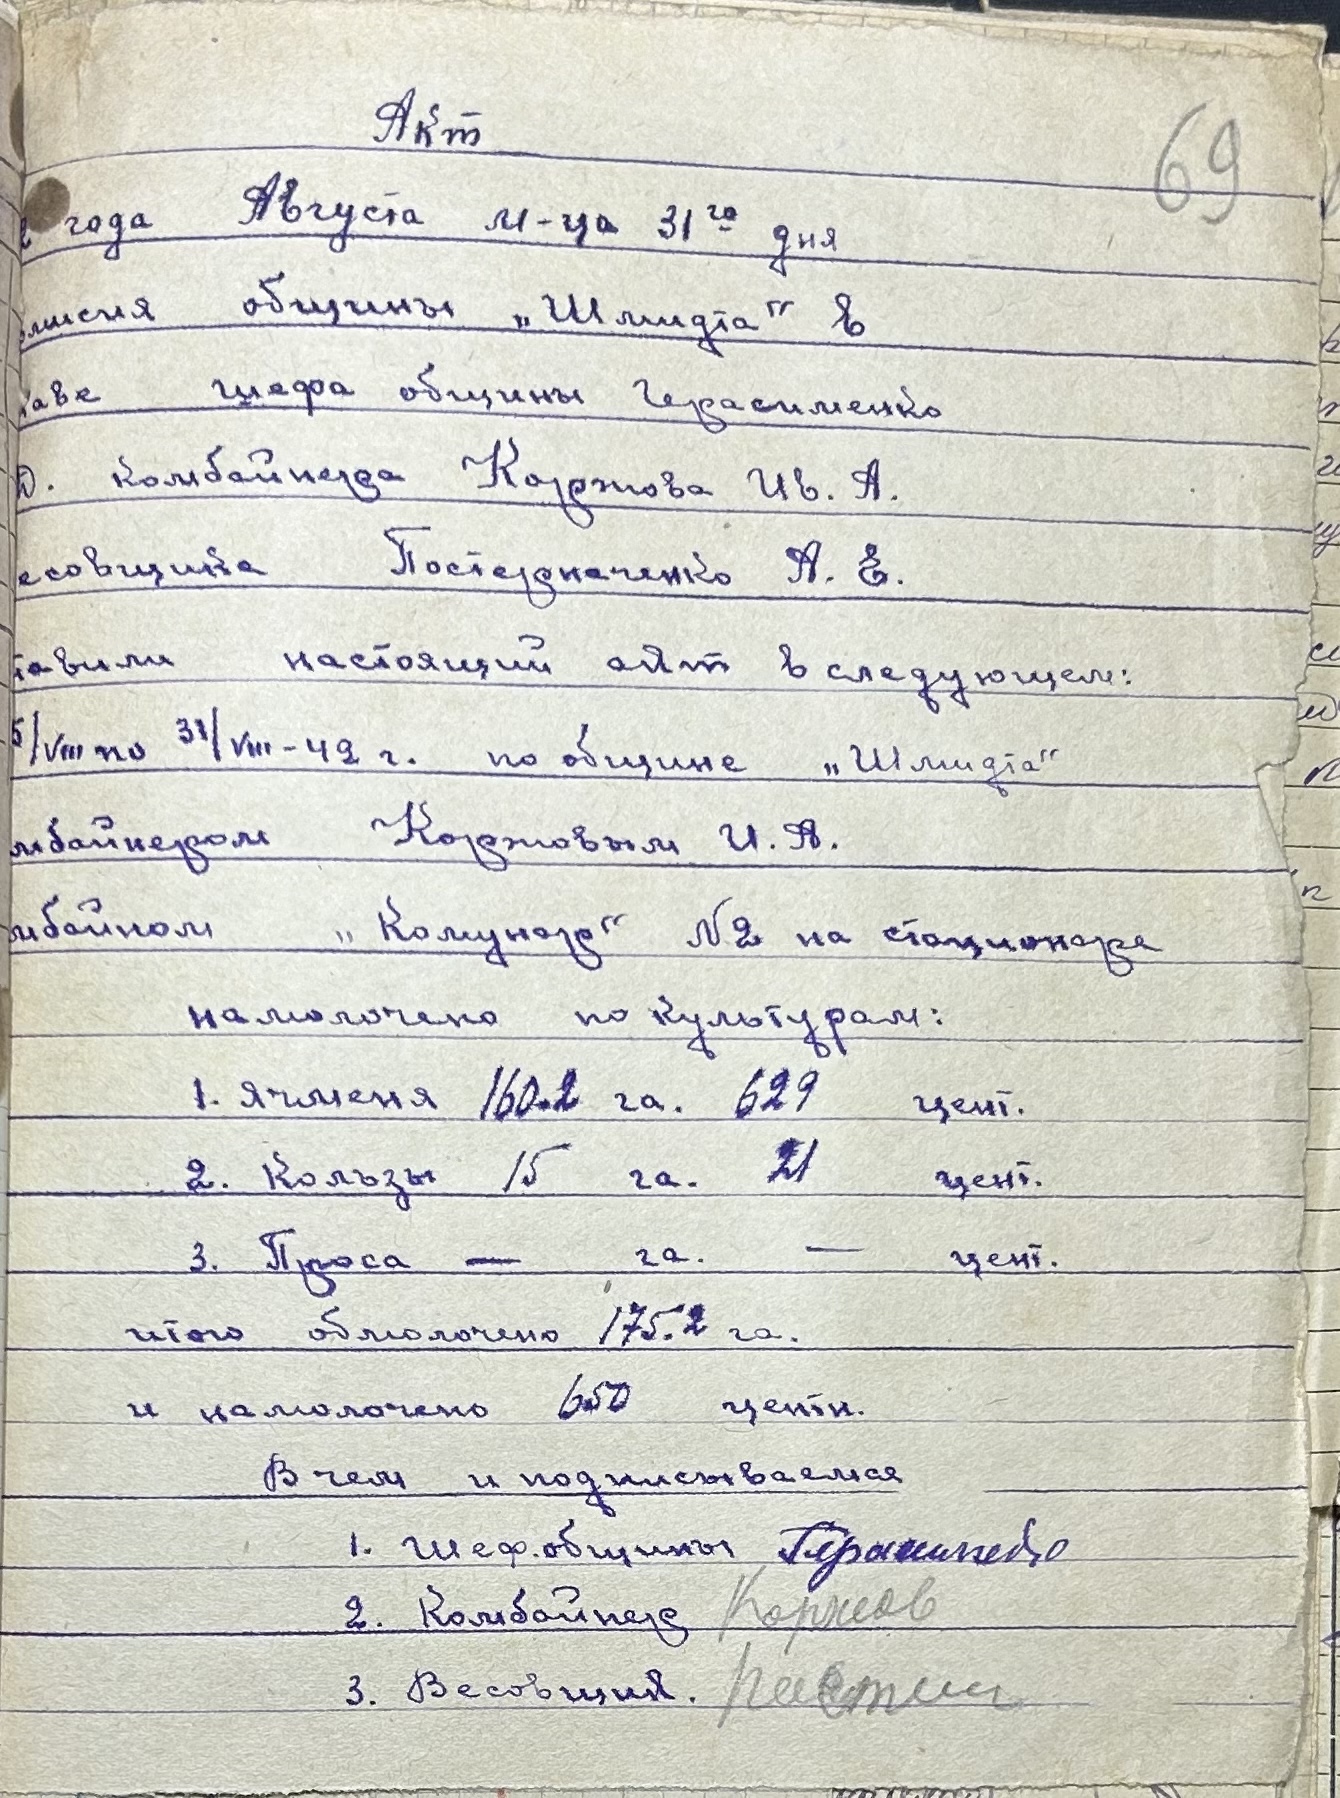 69
Акт
2 года Августа м-ца 31го дня
мисия общины „Шмидта" в
таве шефа общины Герасименко
комбайнера Коржова Ив. А.
есовщика Постерначенко А. Е.
тавили настоящий акт в следующем:
5/VIII по 31/VIII-42 г. по общине „Шмидта"
мбайнером Коржовым И. А.
мбайном „Комунар" №2 на стационаре
намолочено по культурам:
1. Ячменя 160.2 га. 629 цент.
2. Кользы 15 га. 21 цент.
3. Проса — га. — цент.
итого обмолочено 175.2 га.
и намолочено 650 центн.
В чем и подписываемся
1. Шеф.общины Герасименко
2. Комбайнер Коржов
3. Весовщик.